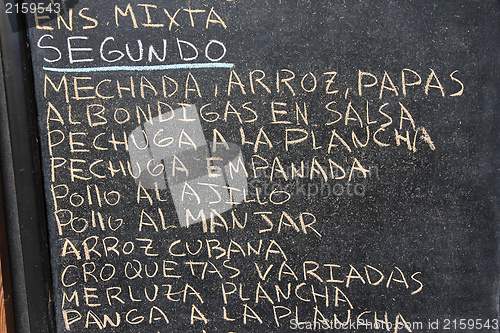 2159543
ENS. MIXTA
SEGUNDO
MECHADA, ARROZ, PAPAS
ALBONDIGAS EN SALSA
PECHUGA A LA PLANCHA
PECHUGA EMPANADA
POllO AL AJILLO
POllO AL MANJAR
ARROZ CUBANA
CROQUETAS VARIADAS
MERLUZA PLANCHA
PANGA A LA PLANCHA
© Stockphotosecrets
2159543
2159543